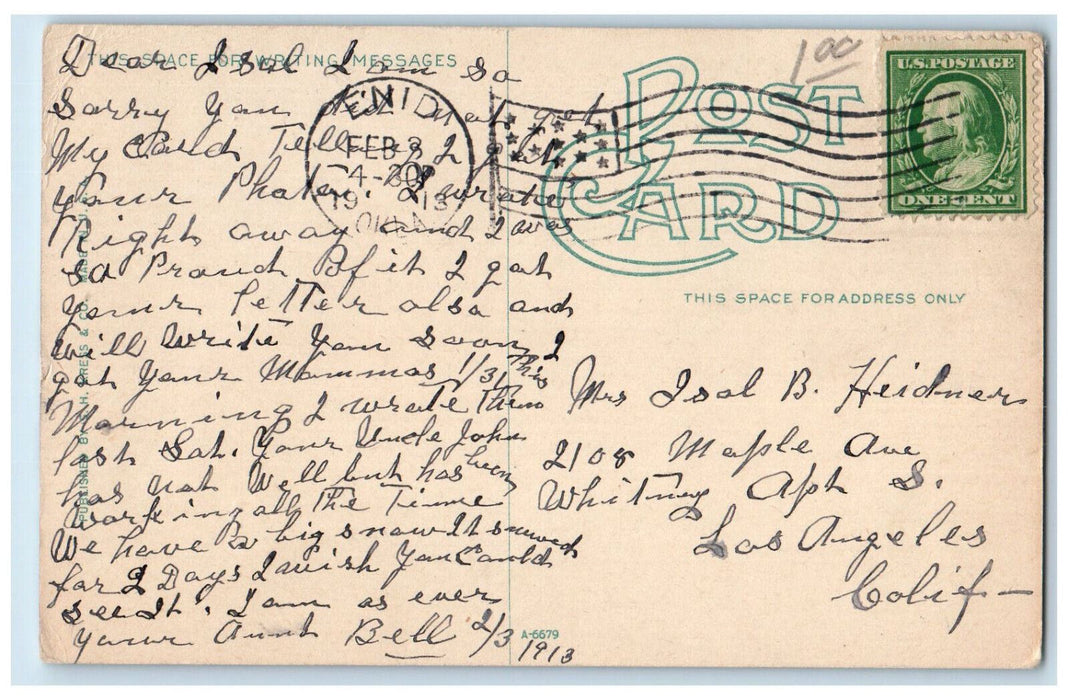 THIS SPACE FOR WRITING MESSAGES
Dear Isol I am so
Sorry You did not get
My Card Telling I got
Your Photo. I wrote
Right away and I was
so Proud Of it I got
Your Letter also and
will write You Soon I
got Your Mammas 1/31 This
Morning I wrote Them
last Sat. Your Uncle John
has not Well but has been
working all The Time
We have a big snow It snowed
for 2 Days I wish You Could
see It. I am as ever
Your Aunt Bell 2/3
1913
A-6679
ENID
FEB 3
4-30P
1913
OKLA
1 00
POST
CARD
U.S. POSTAGE
ONE CENT
THIS SPACE FOR ADDRESS ONLY
Mrs Isol B. Heidner
2108 Maple Ave
Whitney Apt S.
Los Angeles
Colif —